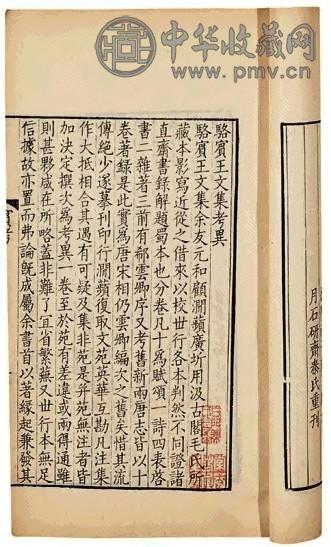 中华收藏网
www.pmv.cn
月石研齋秦氏重刊
駱賓王文集考異
駱賓王文集余友元和顧澗蘋廣圻用汲古閣毛氏所
藏本影寫近從之借來以校世行各本判然不同證諸
直齋書錄解題蜀本也分卷凡十為賦頌一詩四表啓
書二雜著三前有郗雲卿序又考舊新兩唐志皆以十
卷著錄是此實為唐宋相仍雲卿編次之舊矣惜其流
傳絕少遂摹刊印行澗蘋復取文苑英華互勘凡注集
作大抵相合其遇有可疑及集非苑是并苑無注者皆
加決定撰次為考異一卷至於苑有差違或兩得通雖
則甚夥咸在所略蓋非難了宜省繁蕪又世行本無足
信據故亦置而弗論旣成屬余書首以著緣起兼發其